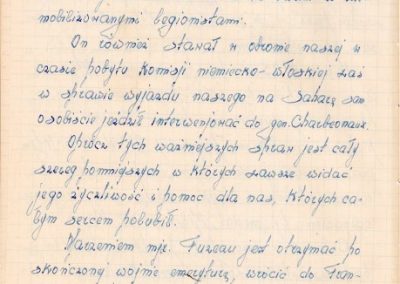 mobilizowanymi legionistami.
On również stawał w obronie naszej w
czasie pobytu Komisji niemiecko-włoskiej zaś
w sprawie wyjazdu naszego na Saharę sam
osobiście jeździł interwenjować do gen.
Oprócz tych ważniejszych spraw jest cały
szereg pomniejszych w których zawsze widać
jego życzliwość i pomoc dla nas, których ca-
łym sercem polubił.
Marzeniem mjr. jest otrzymać po
skończonej wojnie emeryturę, wrócić do Fran-